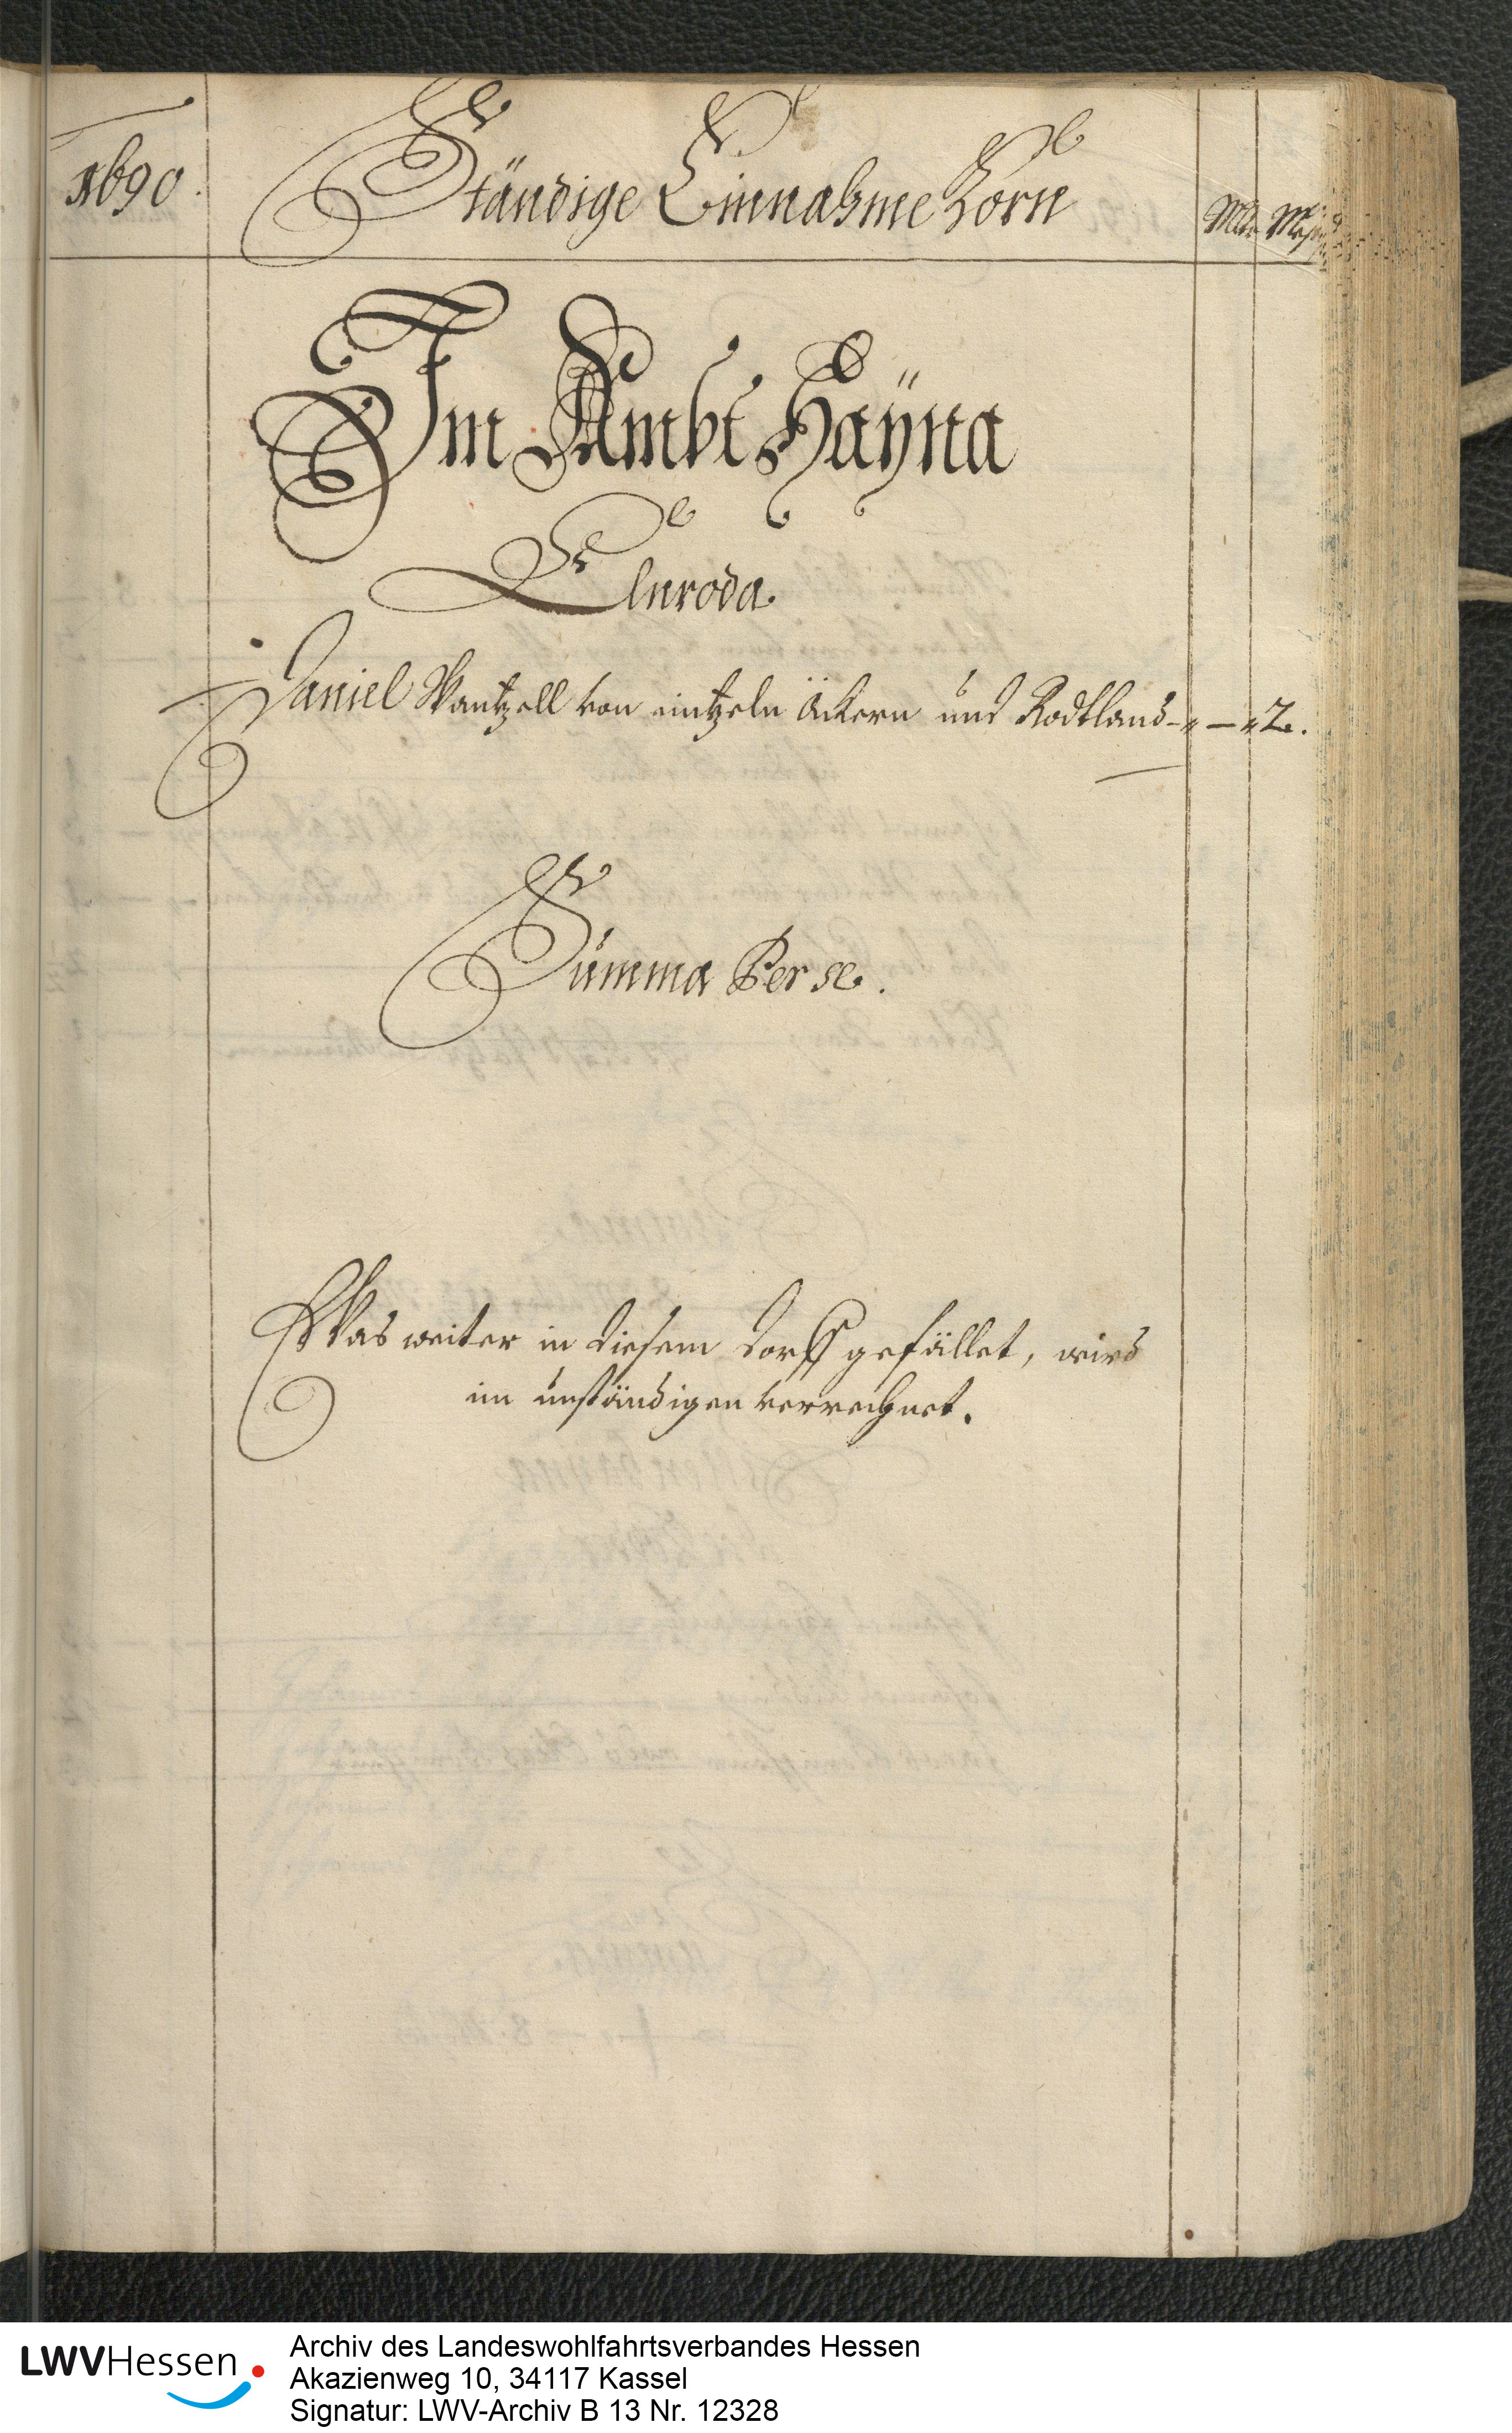 1690.
Ständige Einnahme Korn
Mltr Mesten
Im Ambt Haÿna
Ellnroda.
Daniel Wantzell von eintzeln Äckern und Rodtland - " — " 2.
Summa Per se.
Was weiter in diesem Dorff gefället, wird
im unständigen verrechnet.
LWVHessen
Archiv des Landeswohlfahrtsverbandes Hessen
Akazienweg 10, 34117 Kassel
Signatur: LWV-Archiv B 13 Nr. 12328